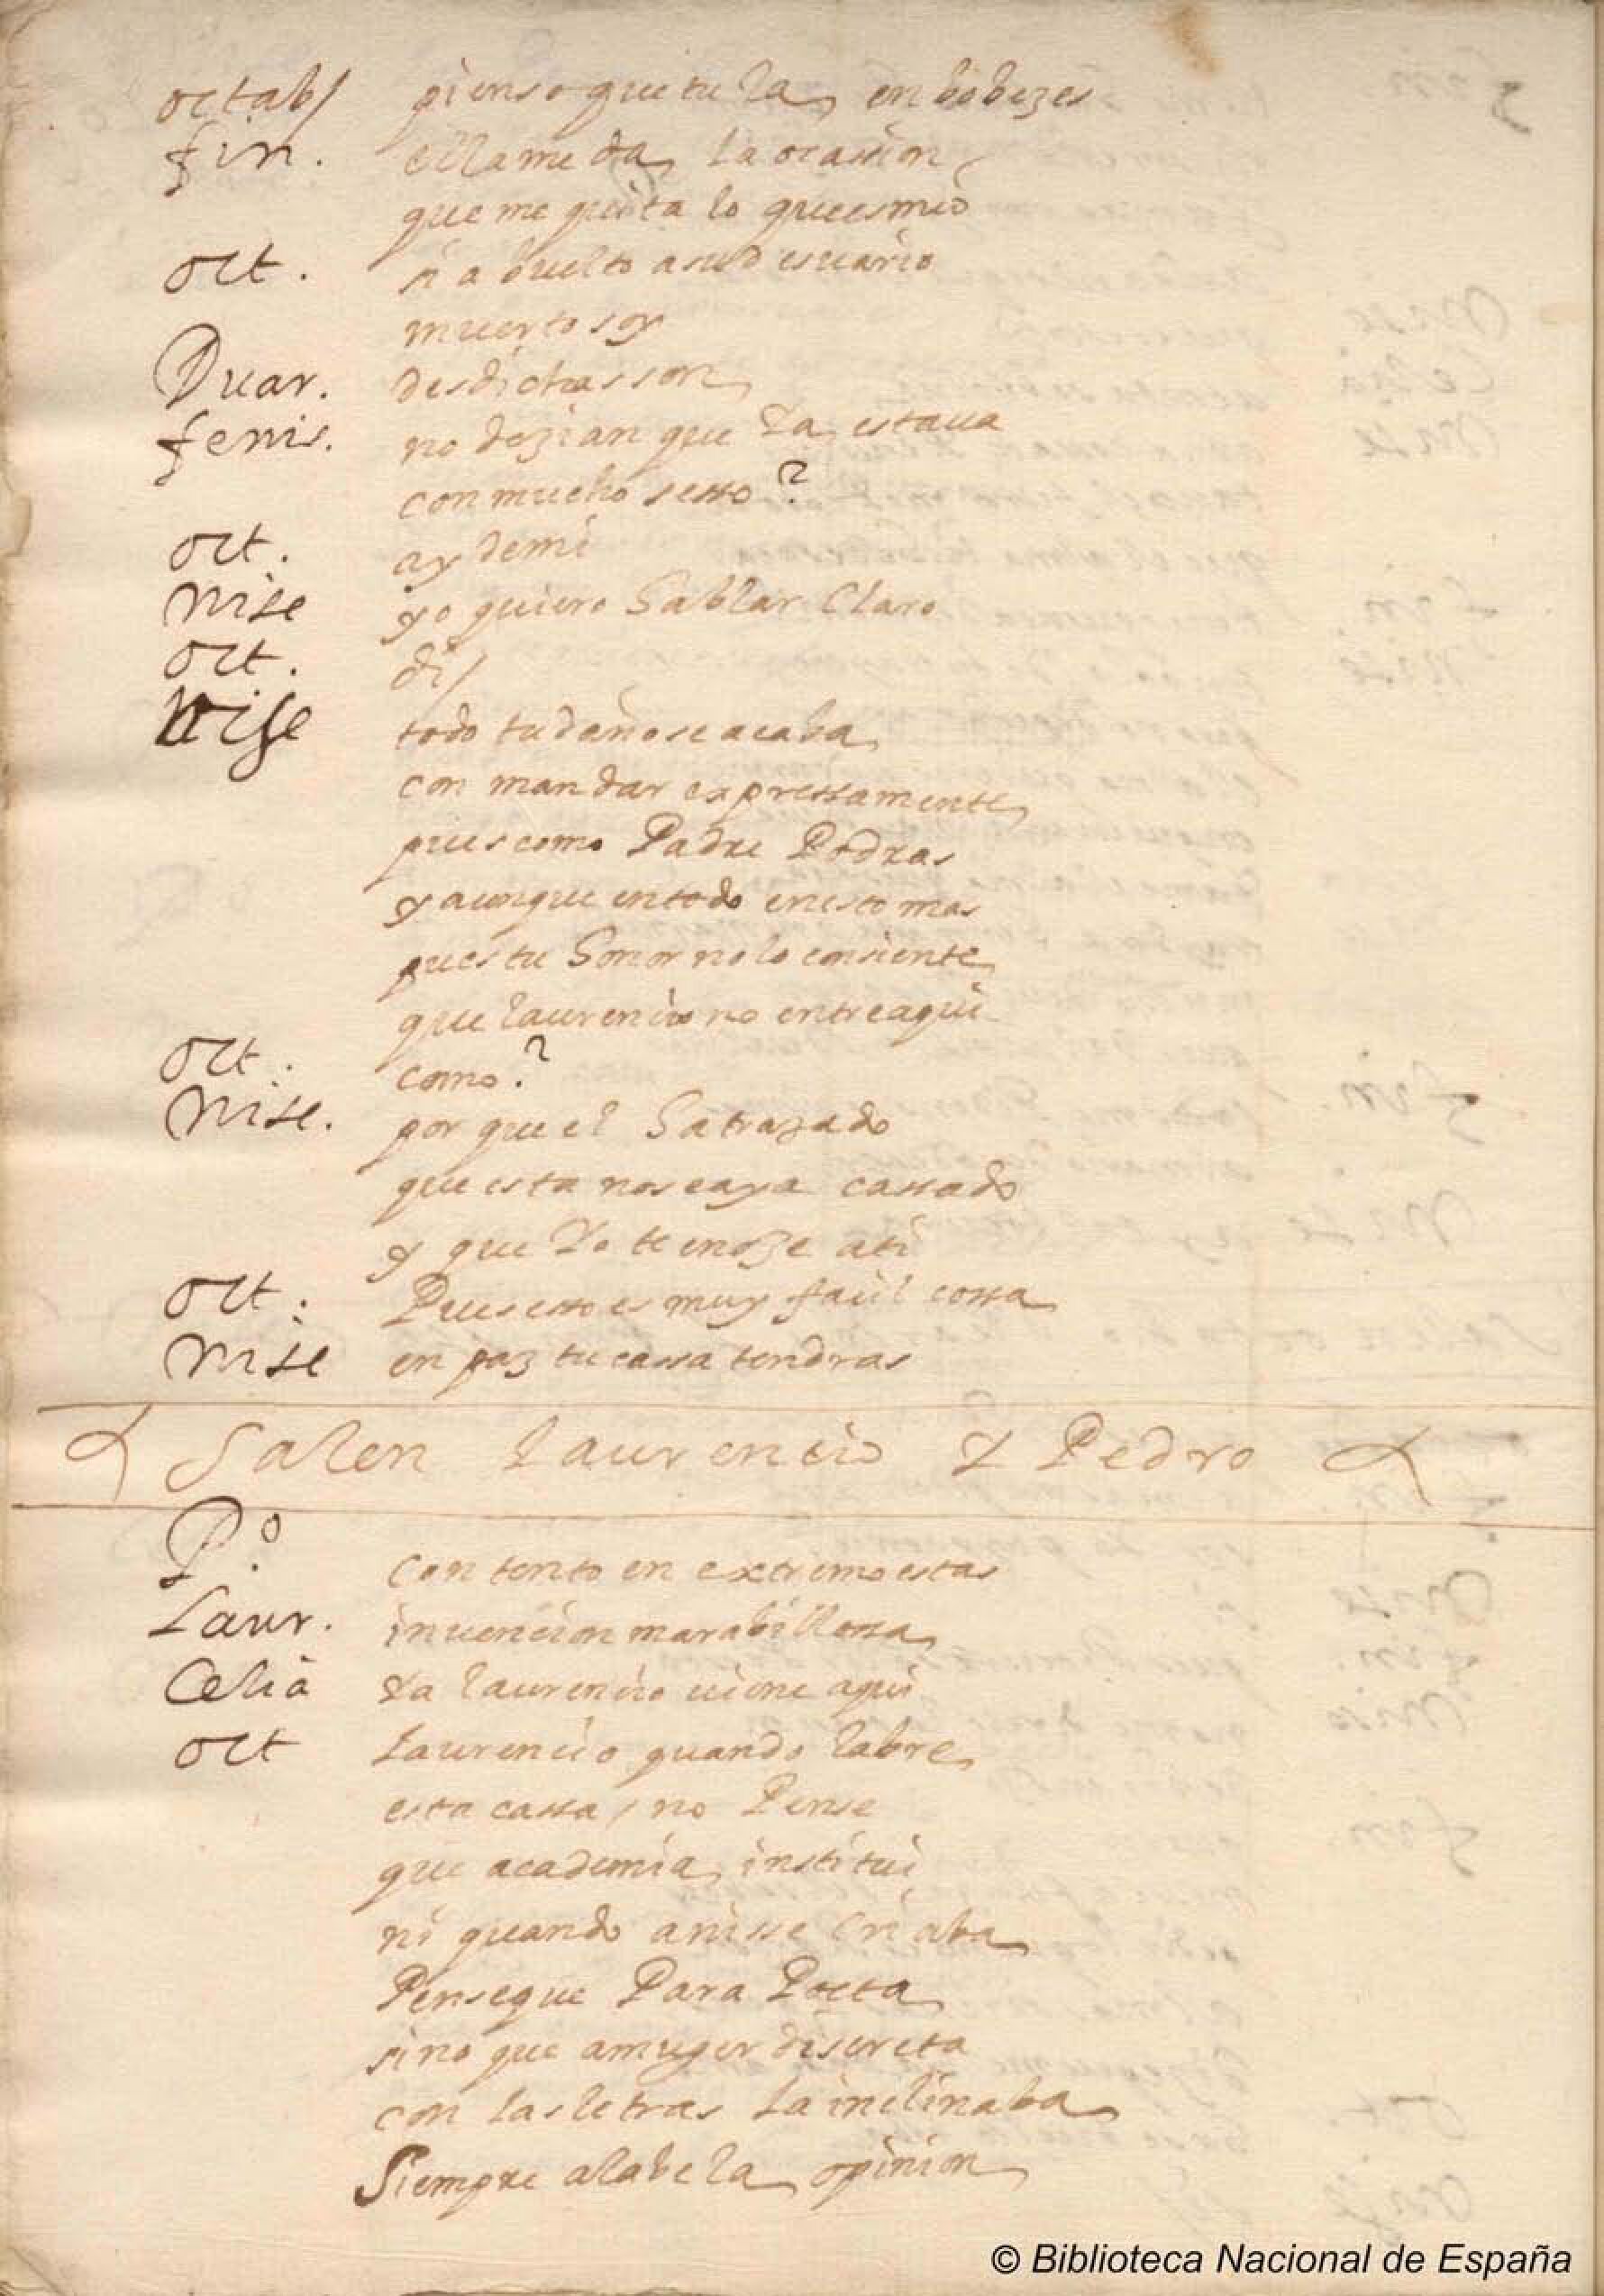 octab/ pienso que tu la en bobezes
fin. ella me da la ocassion
que me quita lo que es mio
oct. si a buelto a su desuario
muerto soy
Duar. desdichas son
fenis. no dezian que ya estaua
con mucho sesso?
oct. ay de mi
Nise yo quiero hablar Claro
oct. di/
Nise todo tu daño se acaba
con mandar expressamente
pues como Padre Podras
y aunque en todo en esto mas
pues tu honor no lo consiente
que laurencio no entre aqui
oct. como?
Nise. por que el ha trazado
que esta no se aya cassado
y que yo te enoje a ti
oct. Pues esso es muy facil cossa
Nise en paz tu cassa tendras
Salen laurencio y Pedro
P.º Contento en extremo estas
Laur. inuencion marabillossa
Celia ya laurencio uiene aqui
oct laurencio quando labre
esta cassa, no Pense
que academia institui
ni quando a nisse criaba
Pense que Para Poeta
sino que a muger discreta
con las letras la inclinaba
Siempre alabe la opinion
© Biblioteca Nacional de España